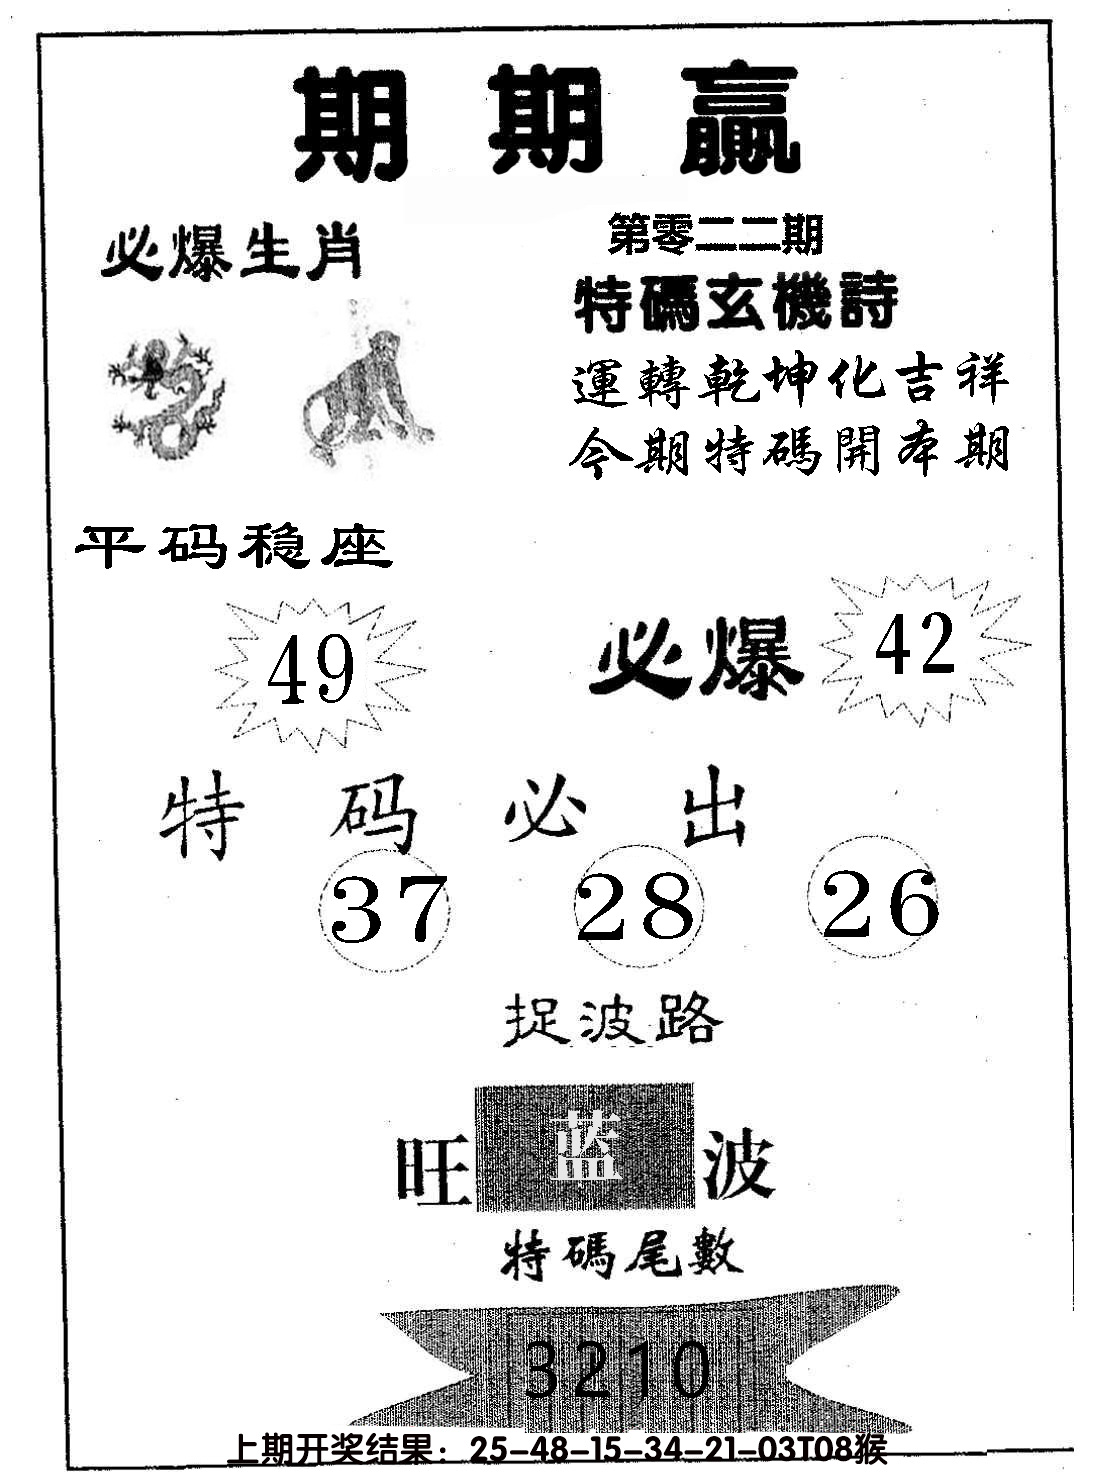 期期贏
必爆生肖
第零二二期
特碼玄機詩
運轉乾坤化吉祥
今期特碼開本期
平码稳座
49
必爆 42
特码必出
37 28 26
捉波路
旺 蓝 波
特碼尾數
3210
上期开奖结果：25-48-15-34-21-03T08猴